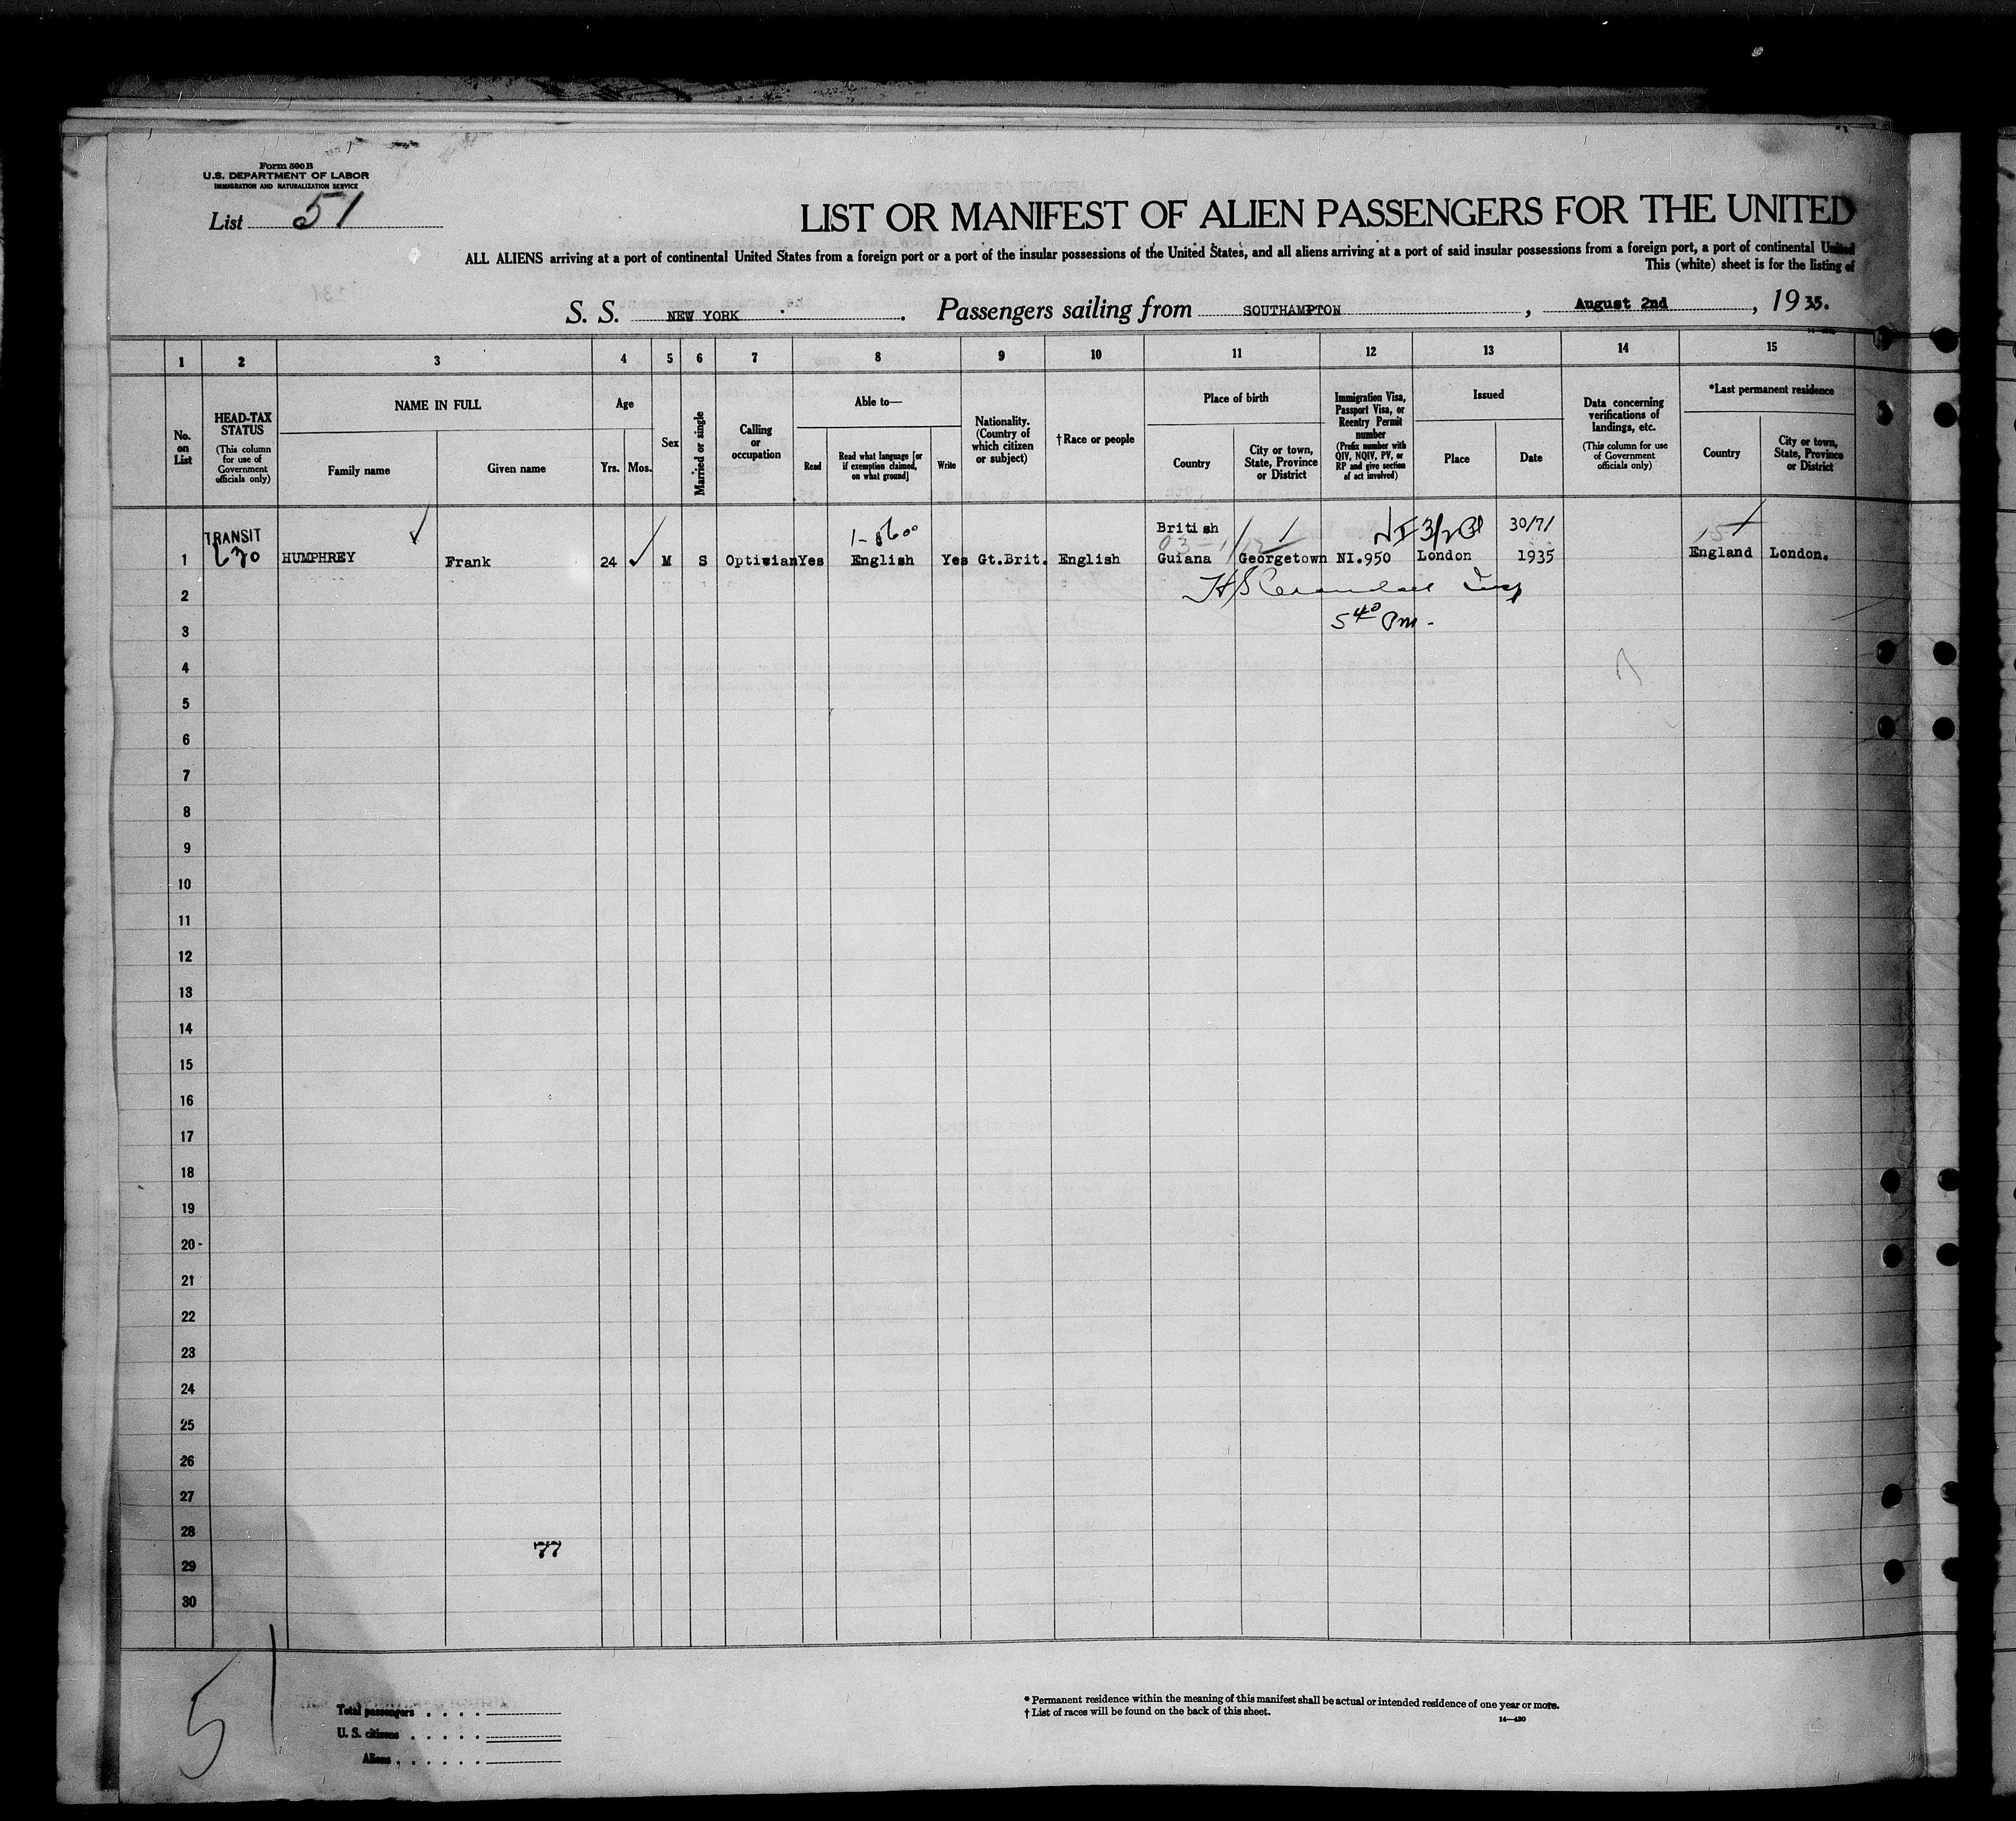 Form 500B
U.S. DEPARTMENT OF LABOR
IMMIGRATION AND NATURALIZATION SERVICE
List 51
LIST OR MANIFEST OF ALIEN PASSENGERS FOR THE UNITED
ALL ALIENS arriving at a port of continental United States from a foreign port or a port of the insular possessions of the United States, and all aliens arriving at a port of said insular possessions from a foreign port, a port of continental United
This (white) sheet is for the listing of
S. S. NEW YORK. Passengers sailing from SOUTHAMPTON, August 2nd, 1935.
1 2 3 4 5 6 7 8 9 10 11 12 13 14 15
No. on List
HEAD-TAX STATUS (This column for use of Government officials only)
NAME IN FULL
Family name Given name
Age
Yrs. Mos.
Sex
Married or single
Calling or occupation
Able to—
Read Read what language [or if exemption claimed, on what ground] Write
Nationality. (Country of which citizen or subject)
†Race or people
Place of birth
Country City or town, State, Province or District
Immigration Visa, Passport Visa, or Reentry Permit number (Prefix number with QIV, NQIV, PV, or RP and give section of act involved)
Issued
Place Date
Data concerning verifications of landings, etc. (This column for use of Government officials only)
*Last permanent residence
Country City or town, State, Province or District
TRANSIT British 30/7/
1 HUMPHREY Frank 24 M S Optician Yes English Yes Gt.Brit. English Guiana Georgetown NI.950 London 1935 England London.
2
3 5 40 Pm-
4
5
6
7
8
9
10
11
12
13
14
15
16
17
18
19
20
21
22
23
24
25
26
27
28
77
29
30
51
Total passengers
U. S. citizens
Aliens
* Permanent residence within the meaning of this manifest shall be actual or intended residence of one year or more.
† List of races will be found on the back of this sheet.
14—430